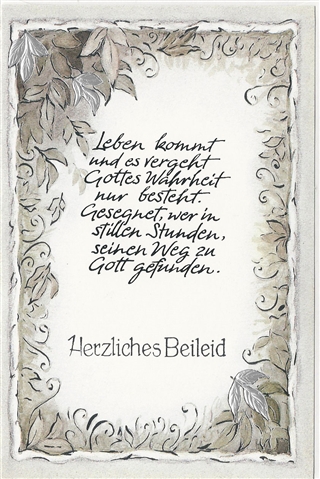 Leben kommt
und es vergeht
Gottes Wahrheit
nur besteht.
Gesegnet, wer in
stillen Stunden,
seinen Weg zu
Gott gefunden.
Herzliches Beileid